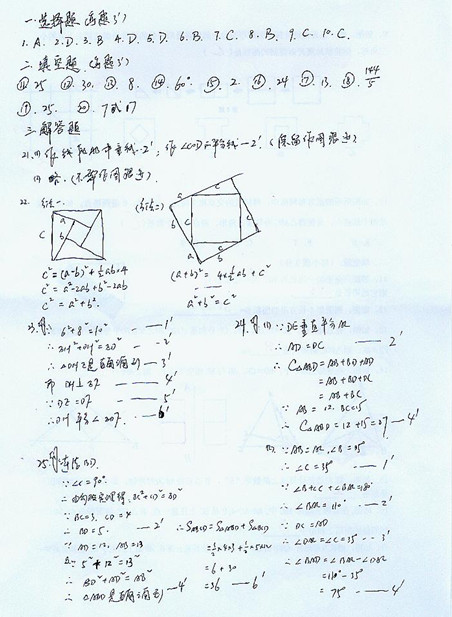 一.选择题(每题3')
1.A. 2.D. 3.B 4.D. 5.D. 6.B. 7.C. 8.B. 9.C. 10.C.
二.填空题.(每题3')
⑪ 25 ⑫ 30. ⑬ 8. ⑭ 60° ⑮ 2. ⑯ 24 ⑰ 13. ⑱ 144/5
⑲ 25. ⑳ 7或17
三.解答题
21.(1)作线段的中垂线-2'. 作∠COD平分线-2'. (保留作图痕迹)
(2) 略.(不写作图痕迹).
22. 方法一.
c² = (a-b)² + ½ab×4
c² = a²-2ab+b²+2ab
c² = a²+b².
(方法二)
(a+b)² = 4×½ab + c²
a²+b² = c²
23. 解: 6²+8²=10² — 1'
— 2'
是直角三角形 — 3'
— 4'
— 5'
— 6'
24. 解 (1) ∵ DE垂直平分AC
∴ AD = DC — 2'
∴ C△ABD = AB+BD+AD
= AB+BD+DC
= AB+BC
∵ AB = 12. BC=15
∴ C△ABD = 12+15=27 — 4'
(2) ∵ AB=AC, ∠B=35°
∴ ∠C=35° — 1'
∵ ∠B+∠C+∠BAC=180°
∴ ∠BAC=110° — 2'
∵ DC=AD
∴ ∠DAC=∠C=35° — 3'
∴ ∠BAD=∠BAC-∠DAC
=110°-35°
=75° — 4'
25. 解: 连结BD.
∵ ∠C=90°.
∴ 由勾股定理得. BC²+CD²=BD²
∵ BC=3, CD=4
∴ BD=5. — 2'
∵ AD=12, AB=13
5²+12²=13²
∴ BD²+AD²=AB²
∴ △ABD是直角三角形 — 4'
∴ SABCD = S△ABD+S△BCD
=½×4×3+½×5×12
= 6+30
=36 — 6'